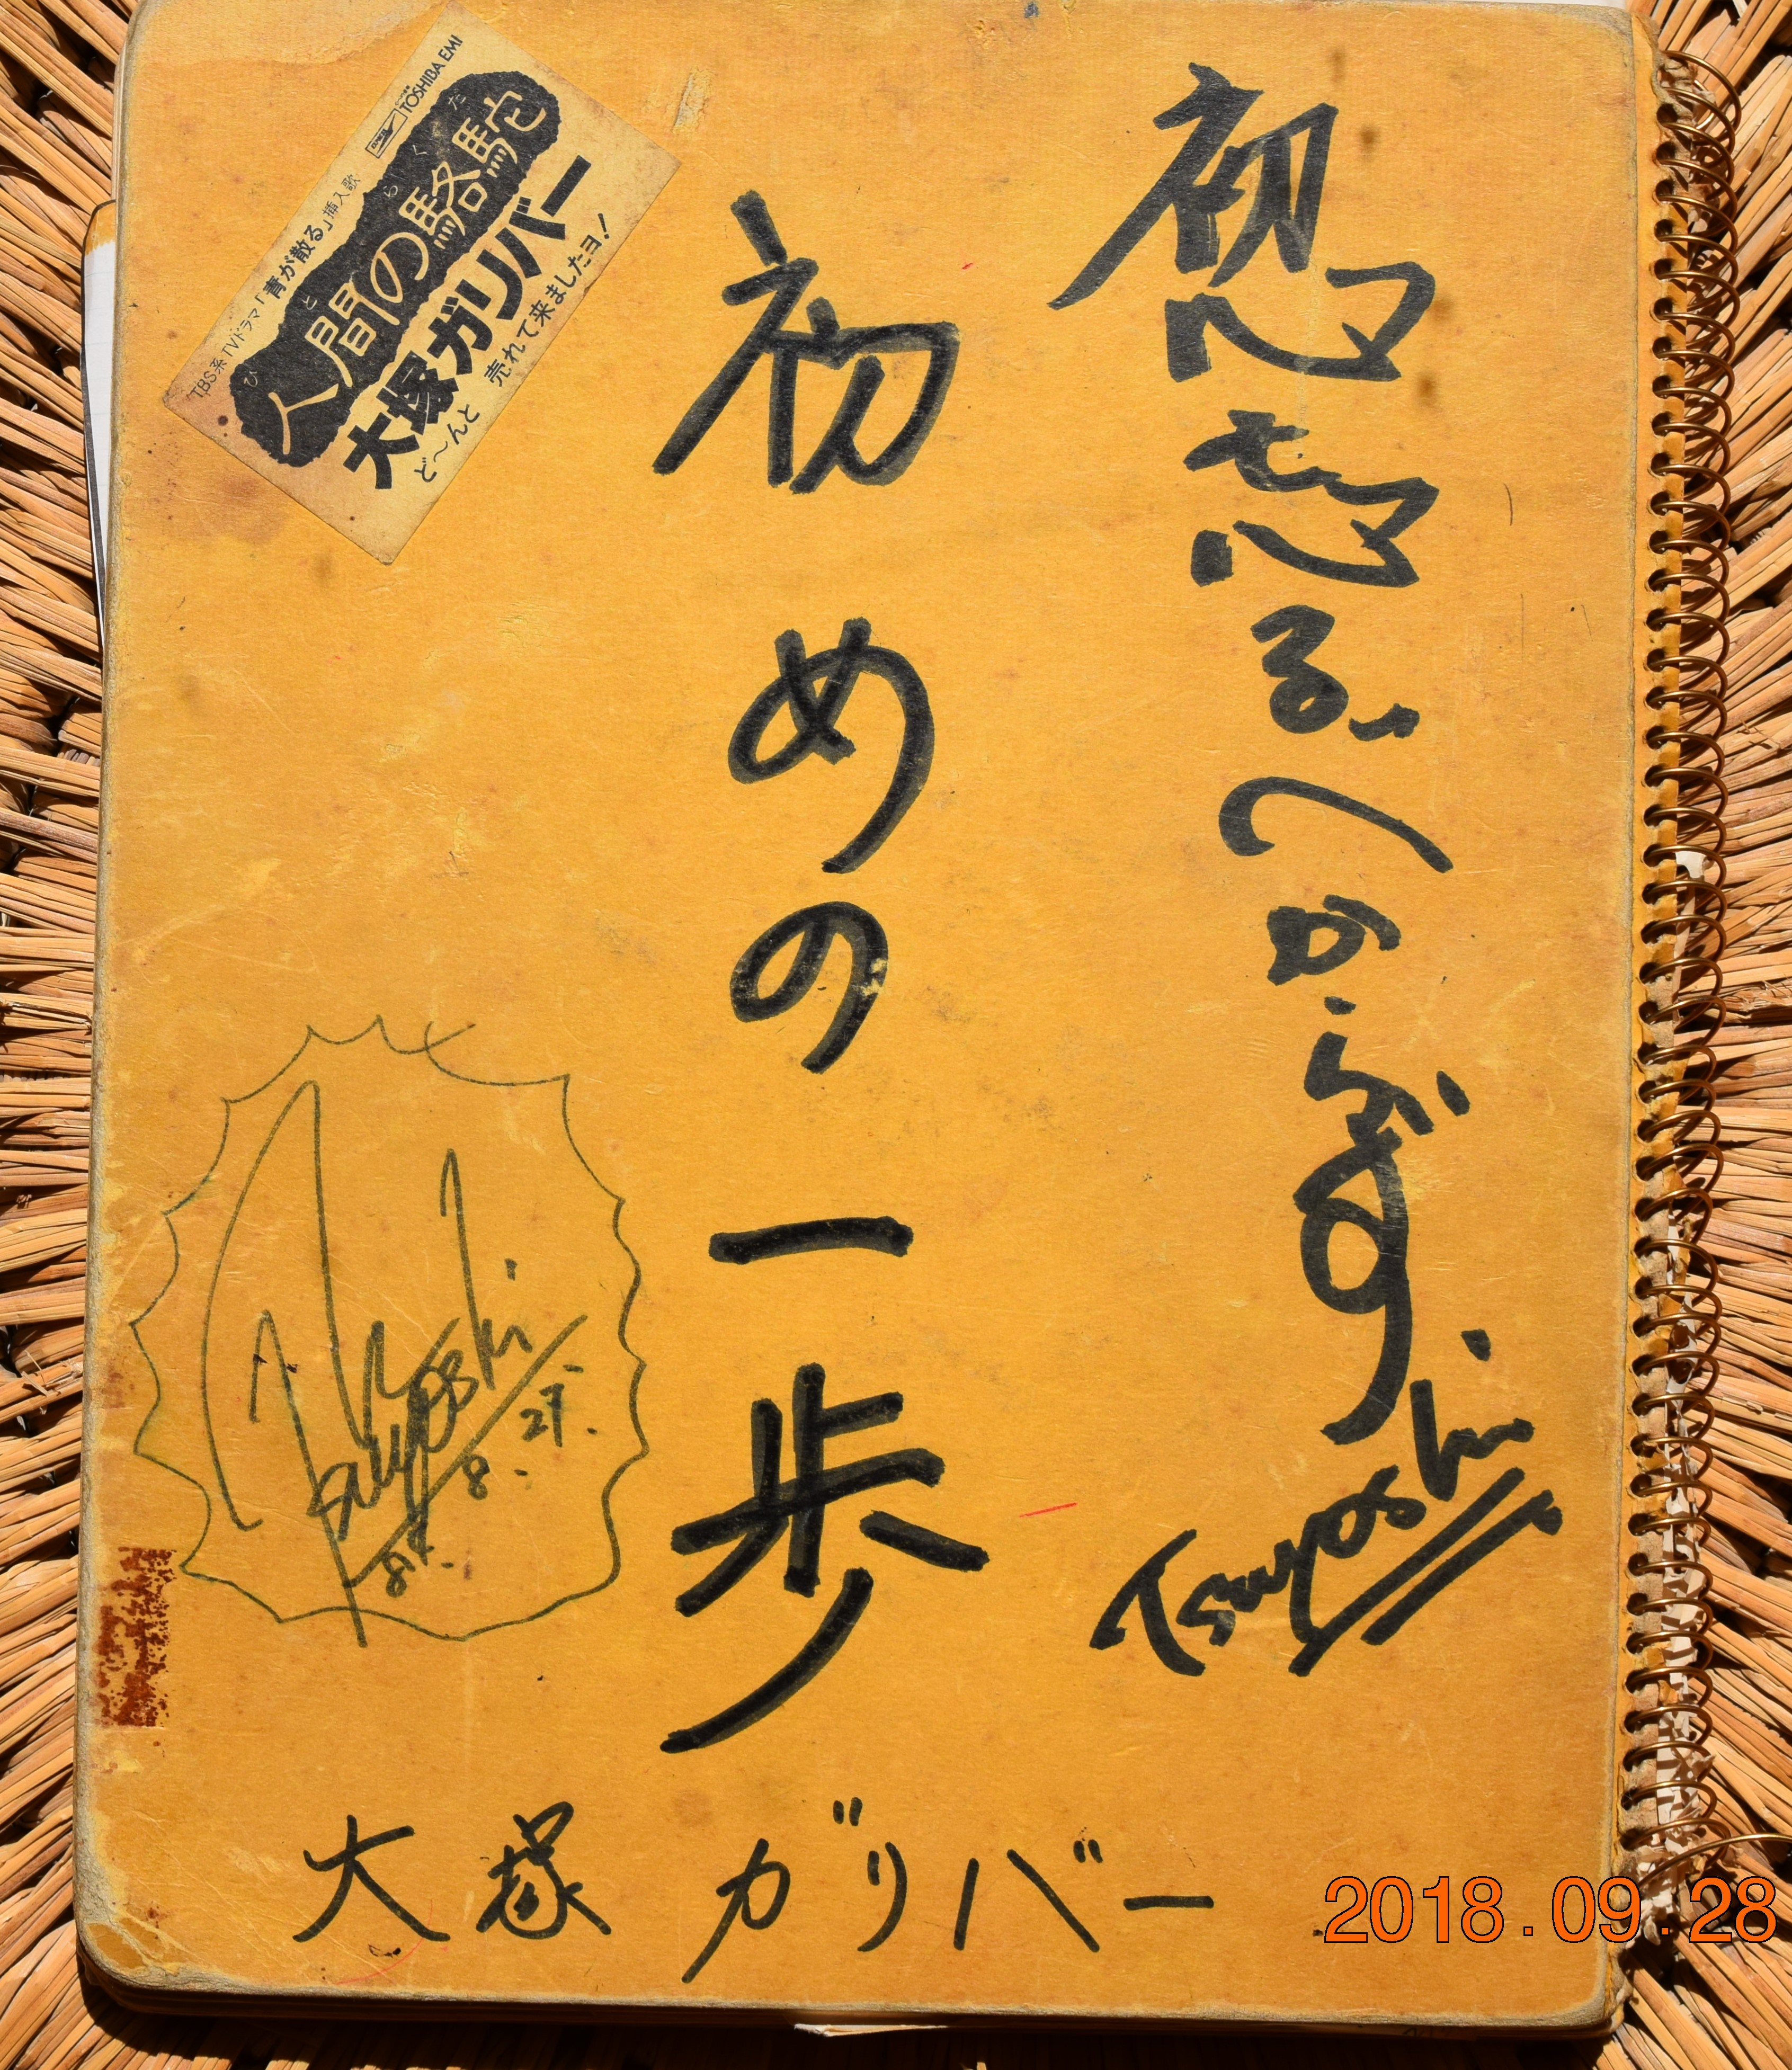 初心忘るべからず
Tsuyoshi
初めの一歩
TOSHIBA EMI
TBS系TVドラマ「青が散る」挿入歌
ひとのらくだ
人間の駱駝
大塚ガリバー
ど〜んと売れて来ましたヨ!
Tsuyoshi
8.27.
大塚ガリバー
2018.09.28